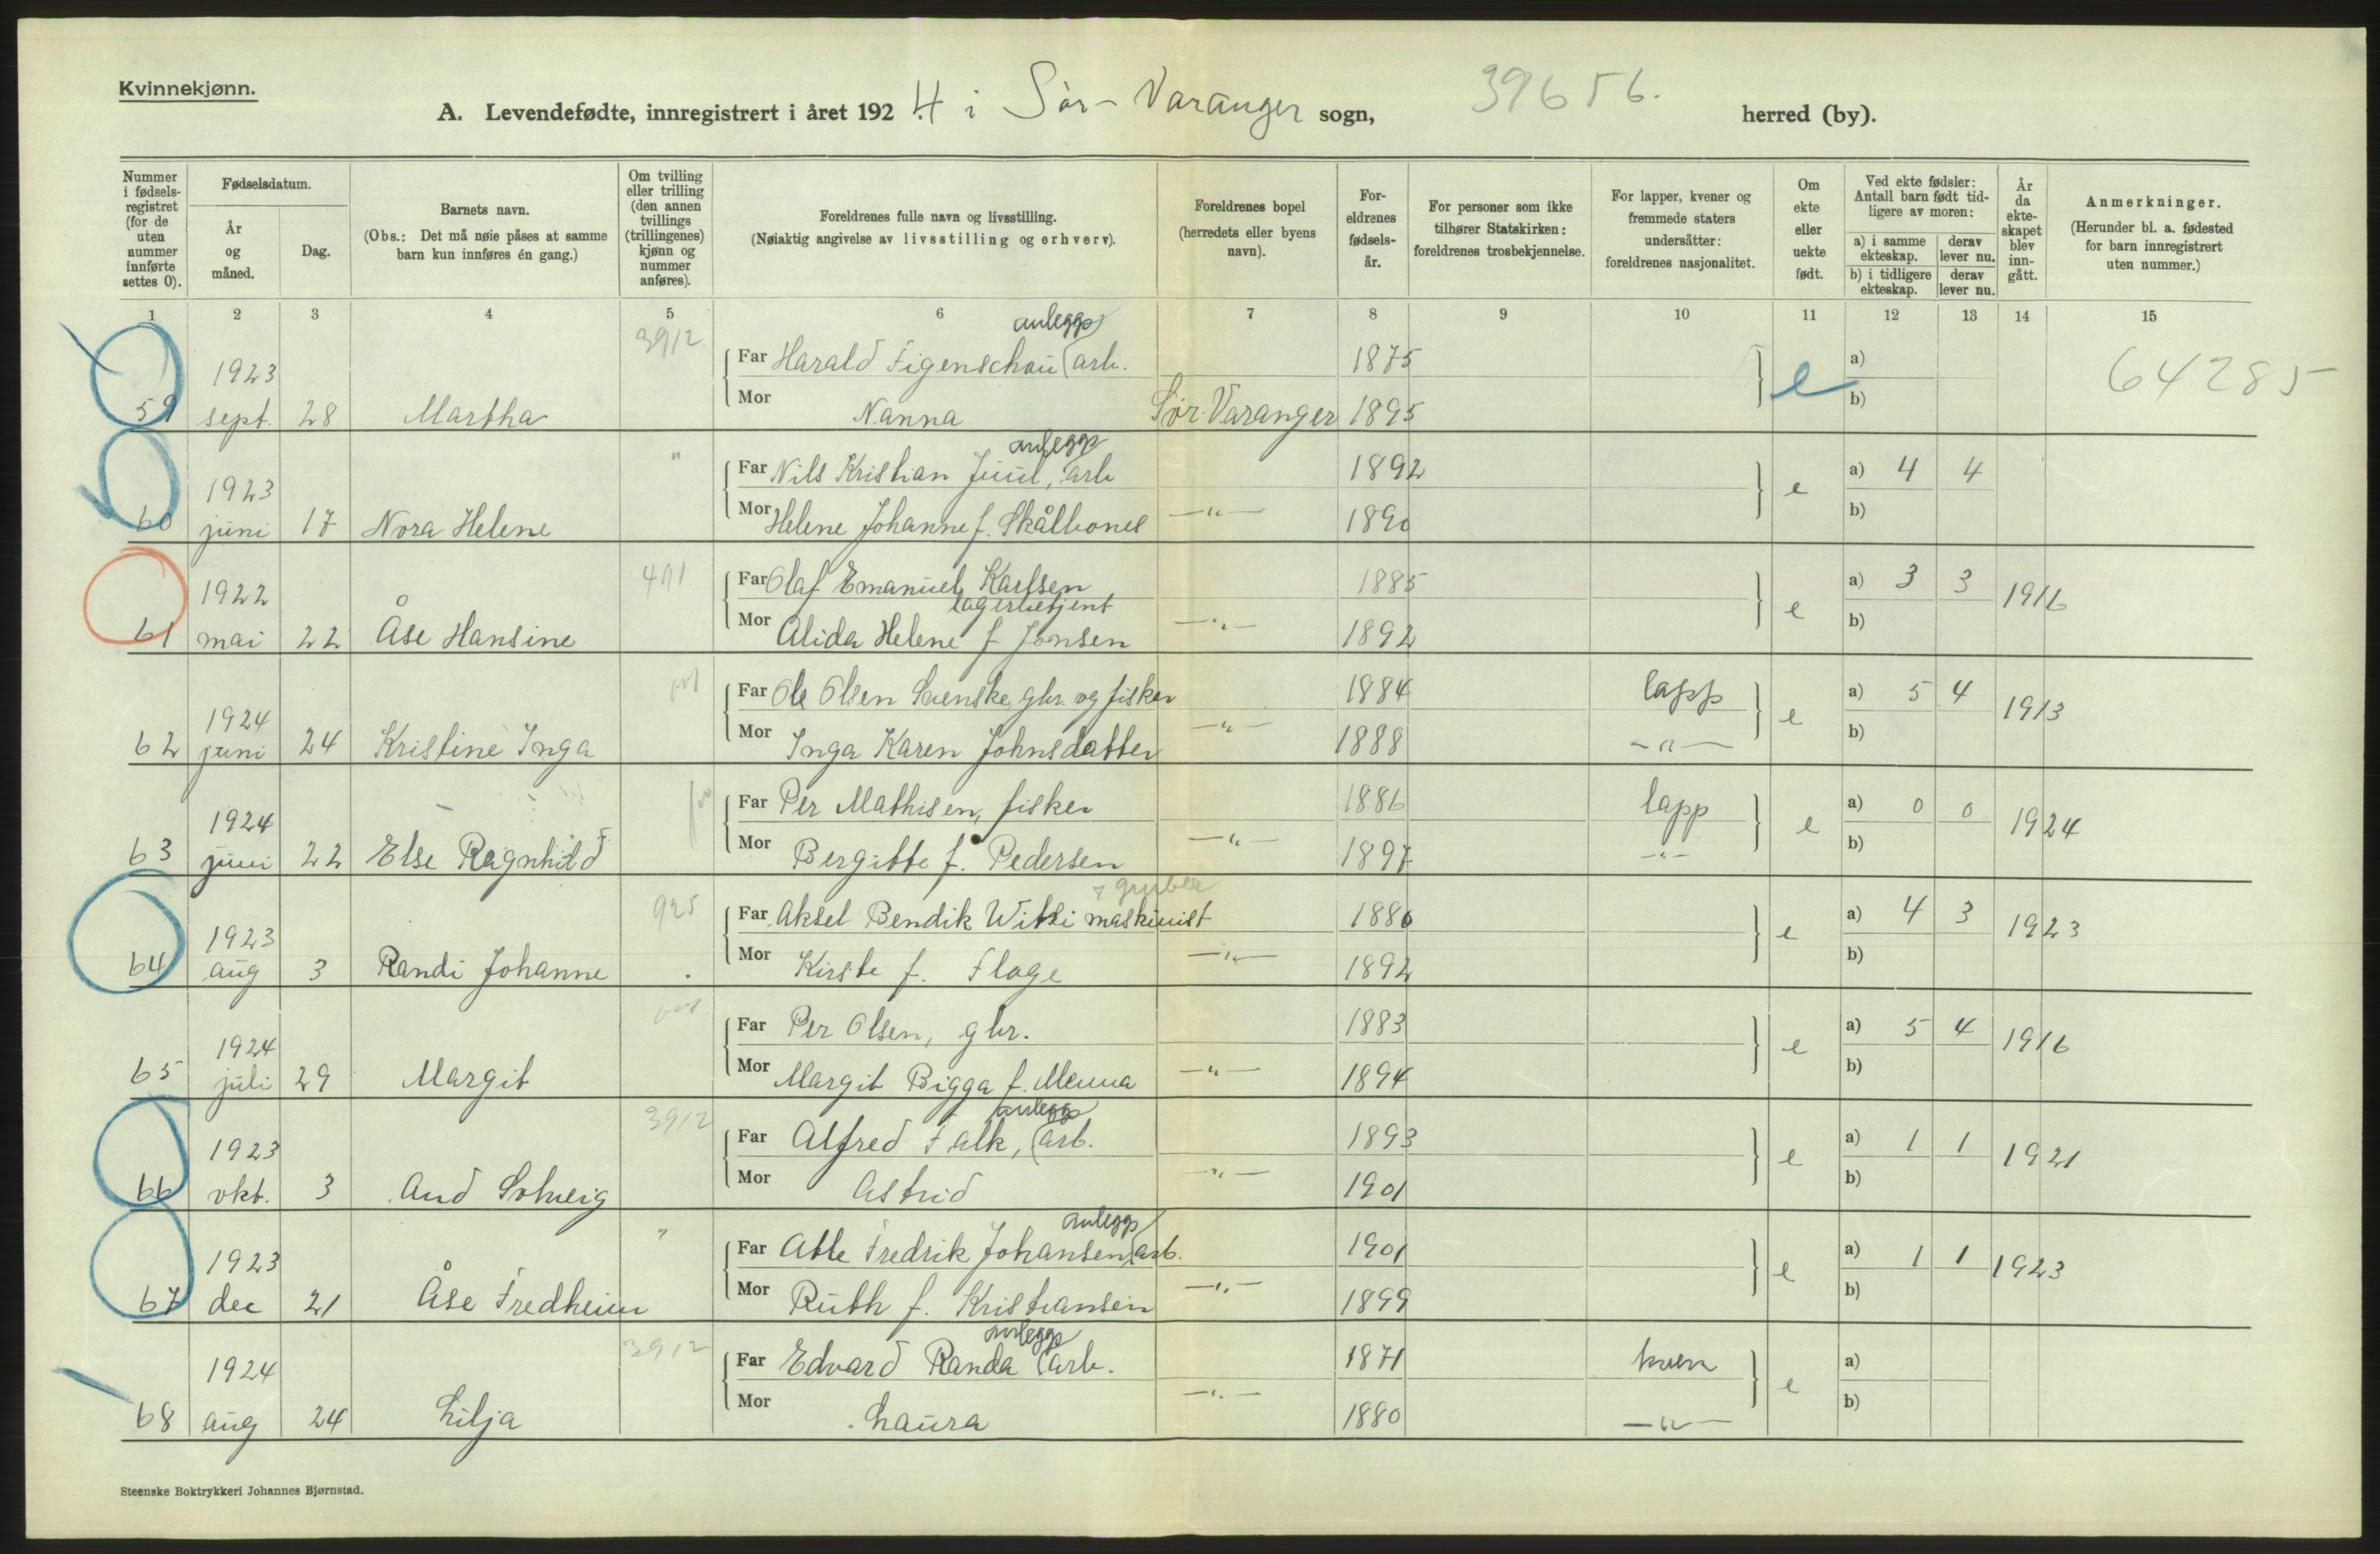 Kvinnekjønn.
A. Levendefødte, innregistrert i året 192 4 i Sør-Varanger sogn, 39656. herred (by).
Nummer i fødselsregistret (for de uten nummer innførte settes 0).
Fødselsdatum.
År og måned.
Dag.
Barnets navn.
(Obs.: Det må nøie påses at samme barn kun innføres én gang.)
Om tvilling eller trilling (den annen tvillings (trillingenes) kjønn og nummer anføres).
Foreldrenes fulle navn og livsstilling.
(Nøiaktig angivelse av livsstilling og erhverv).
Foreldrenes bopel (herredets eller byens navn).
Foreldrenes fødselsår.
For personer som ikke tilhører Statskirken: foreldrenes trosbekjennelse.
For lapper, kvener og fremmede staters undersåtter: foreldrenes nasjonalitet.
Om ekte eller uekte født.
Ved ekte fødsler: Antall barn født tidligere av moren:
a) i samme ekteskap. derav lever nu.
b) i tidligere ekteskap. derav lever nu.
År da ekteskapet blev inngått.
Anmerkninger.
(Herunder bl. a. fødested for barn innregistrert uten nummer.)
1 2 3 4 5 6 7 8 9 10 11 12 13 14 15
3912 anleggs
1923 Far Harald Figenschou arb. 1875 e a) 64285
59 sept. 28 Martha Mor Nanna Sør-Varanger 1895 b)
" anleggs
1923 Far Nils Kristian Juul, arb 1892 e a) 4 4
60 juni 17 Nora Helene Mor Helene Johanne f. Skålbones —"— 1890 b)
1922 491 Far Olaf Emanuel Karlsen 1885 e a) 3 3 1916
lagerbetjent
61 mai 22 Åse Hansine Mor Alida Helene f Jonsen —"— 1892 b)
1924 Far Ole Olsen Svenske, gbr. og fisker 1884 lapp e a) 5 4 1913
62 juni 24 Kristine Inga Mor Inga Karen Johnsdatter —"— 1888 —"— b)
1924 Far Per Mathisen, fisker 1886 lapp e a) 0 0 1924
63 juni 22 Else Ragnhild Mor Bergitte f. Pedersen —"— 1897 —"— b)
gruber
1923 925 Far Aksel Bendik Witsi maskinist 1880 e a) 4 3 1923
64 aug 3 Randi Johanne Mor Kirste f. Flage —"— 1892 b)
1924 Far Per Olsen, gbr. 1883 e a) 5 4 1916
65 juli 29 Margit Mor Margit Bigga f. Menna —"— 1894 b)
3912 anleggs
1923 Far Alfred Falk, arb. 1893 e a) 1 1 1921
66 okt. 3 Aud Solveig Mor Astrid —"— 1901 b)
" anleggs
1923 Far Atle Fredrik Johansen, arb. 1901 e a) 1 1 1923
67 dec 21 Åse Fredheim Mor Ruth f. Kristiansen —"— 1899 b)
3912 anleggs
1924 Far Edvard Randa arb. 1871 kven e a)
68 aug 24 Lilja Mor Laura —"— 1880 —"— b)
Steenske Boktrykkeri Johannes Bjørnstad.